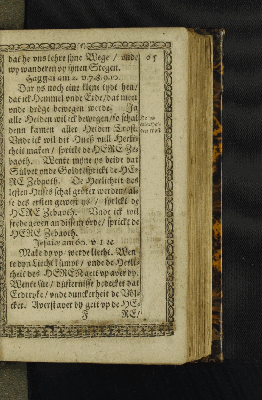 dat he vns lehre syne Wege / vnde
wy wanderen vp synen Stegen.
Haggai am 2. v. 7.8.9.10.
Dar ys noch eine kleine tydt hen/
dat ick Hemmel vnde Erde/ dat meer
vnde dröge bewegen werde. Ja
alle Heiden wil ick bewegen/ so schal
denn kamen aller Heiden Trost.
Vnde ick wil dit Huess vull Herli-
cheit maken / sprickt de HERE Ze-
baoth. Wente myne ys beide dat
Sülver vnde Goldt/ sprickt de HE-
RE Zebaoth. De Herlicheit des
lesten Huses schal gröter werden/ als
se des ersten gewest ys / sprickt de
HERE Zebaoth. Vnde ick wil
frede geven an dissem orde/ sprickt de
HERE Zebaoth.
Jesaiae am 60. v. 1. 2.
Make dy vp / werde licht. Wen-
te dyn Licht kumpt / vnde de Herli-
cheit des HEREN geit vp aver dy.
Wente süe / düsternisse bedecket dat
Erdtryke / vnde dunckerheit de Völ-
cker. Averst aver dy geit vp de HE-
F RE/